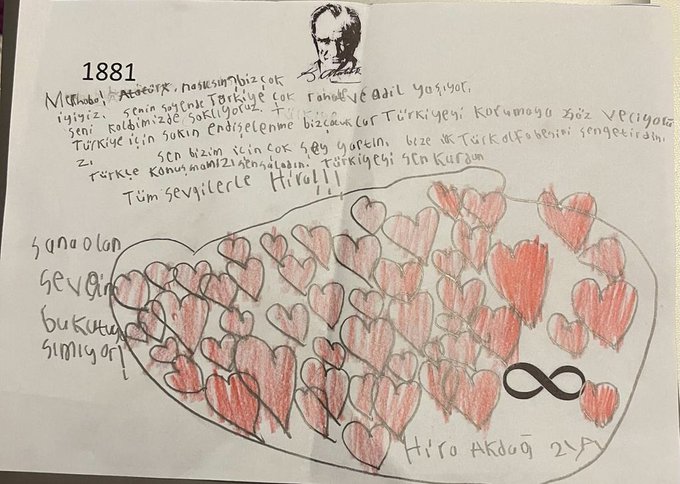 1881
Merhaba! Atatürk, nasılsın? biz çok
iyiyiz. senin sayende Türkiye çok rahat ve adil yaşıyor.
seni kalbimizde saklıyoruz.
Türkiye için sakın endişelenme biz çocuklar Türkiyeyi korumaya söz veriyoru
z. sen bizim için çok şey yaptın. bize ilk Türk alfabesini sen getirdin.
Türkçe konuşmamızı sen sağladın. Türkiyeyi sen kurdun
Tüm sevgilerle Hira!!!
sana olan
sevgim
bu kutuya
sımıyor!
Hira Akdağ 2/A